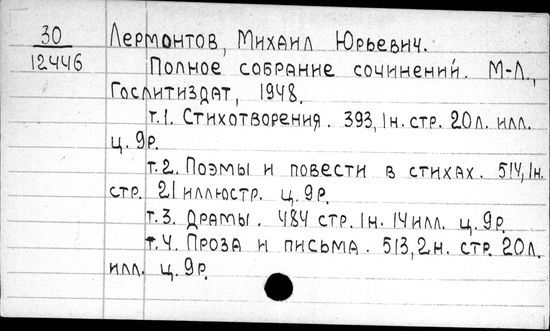 30
12446
Лермонтов, Михаил Юрьевич.
Полное собрание сочинений. М-Л.,
Гослитиздат, 1948.
т.1. Стихотворения. 393, 1н. стр. 20л. илл.
ц. 9р.
т.2. Поэмы и повести в стихах. 514, 1н.
стр. 21 иллюстр. ц. 9р.
т.3. Драмы. 484 стр. 1н. 14 илл. ц. 9р.
т.4. Проза и письма. 513, 2н. стр. 20л.
илл. ц. 9р.